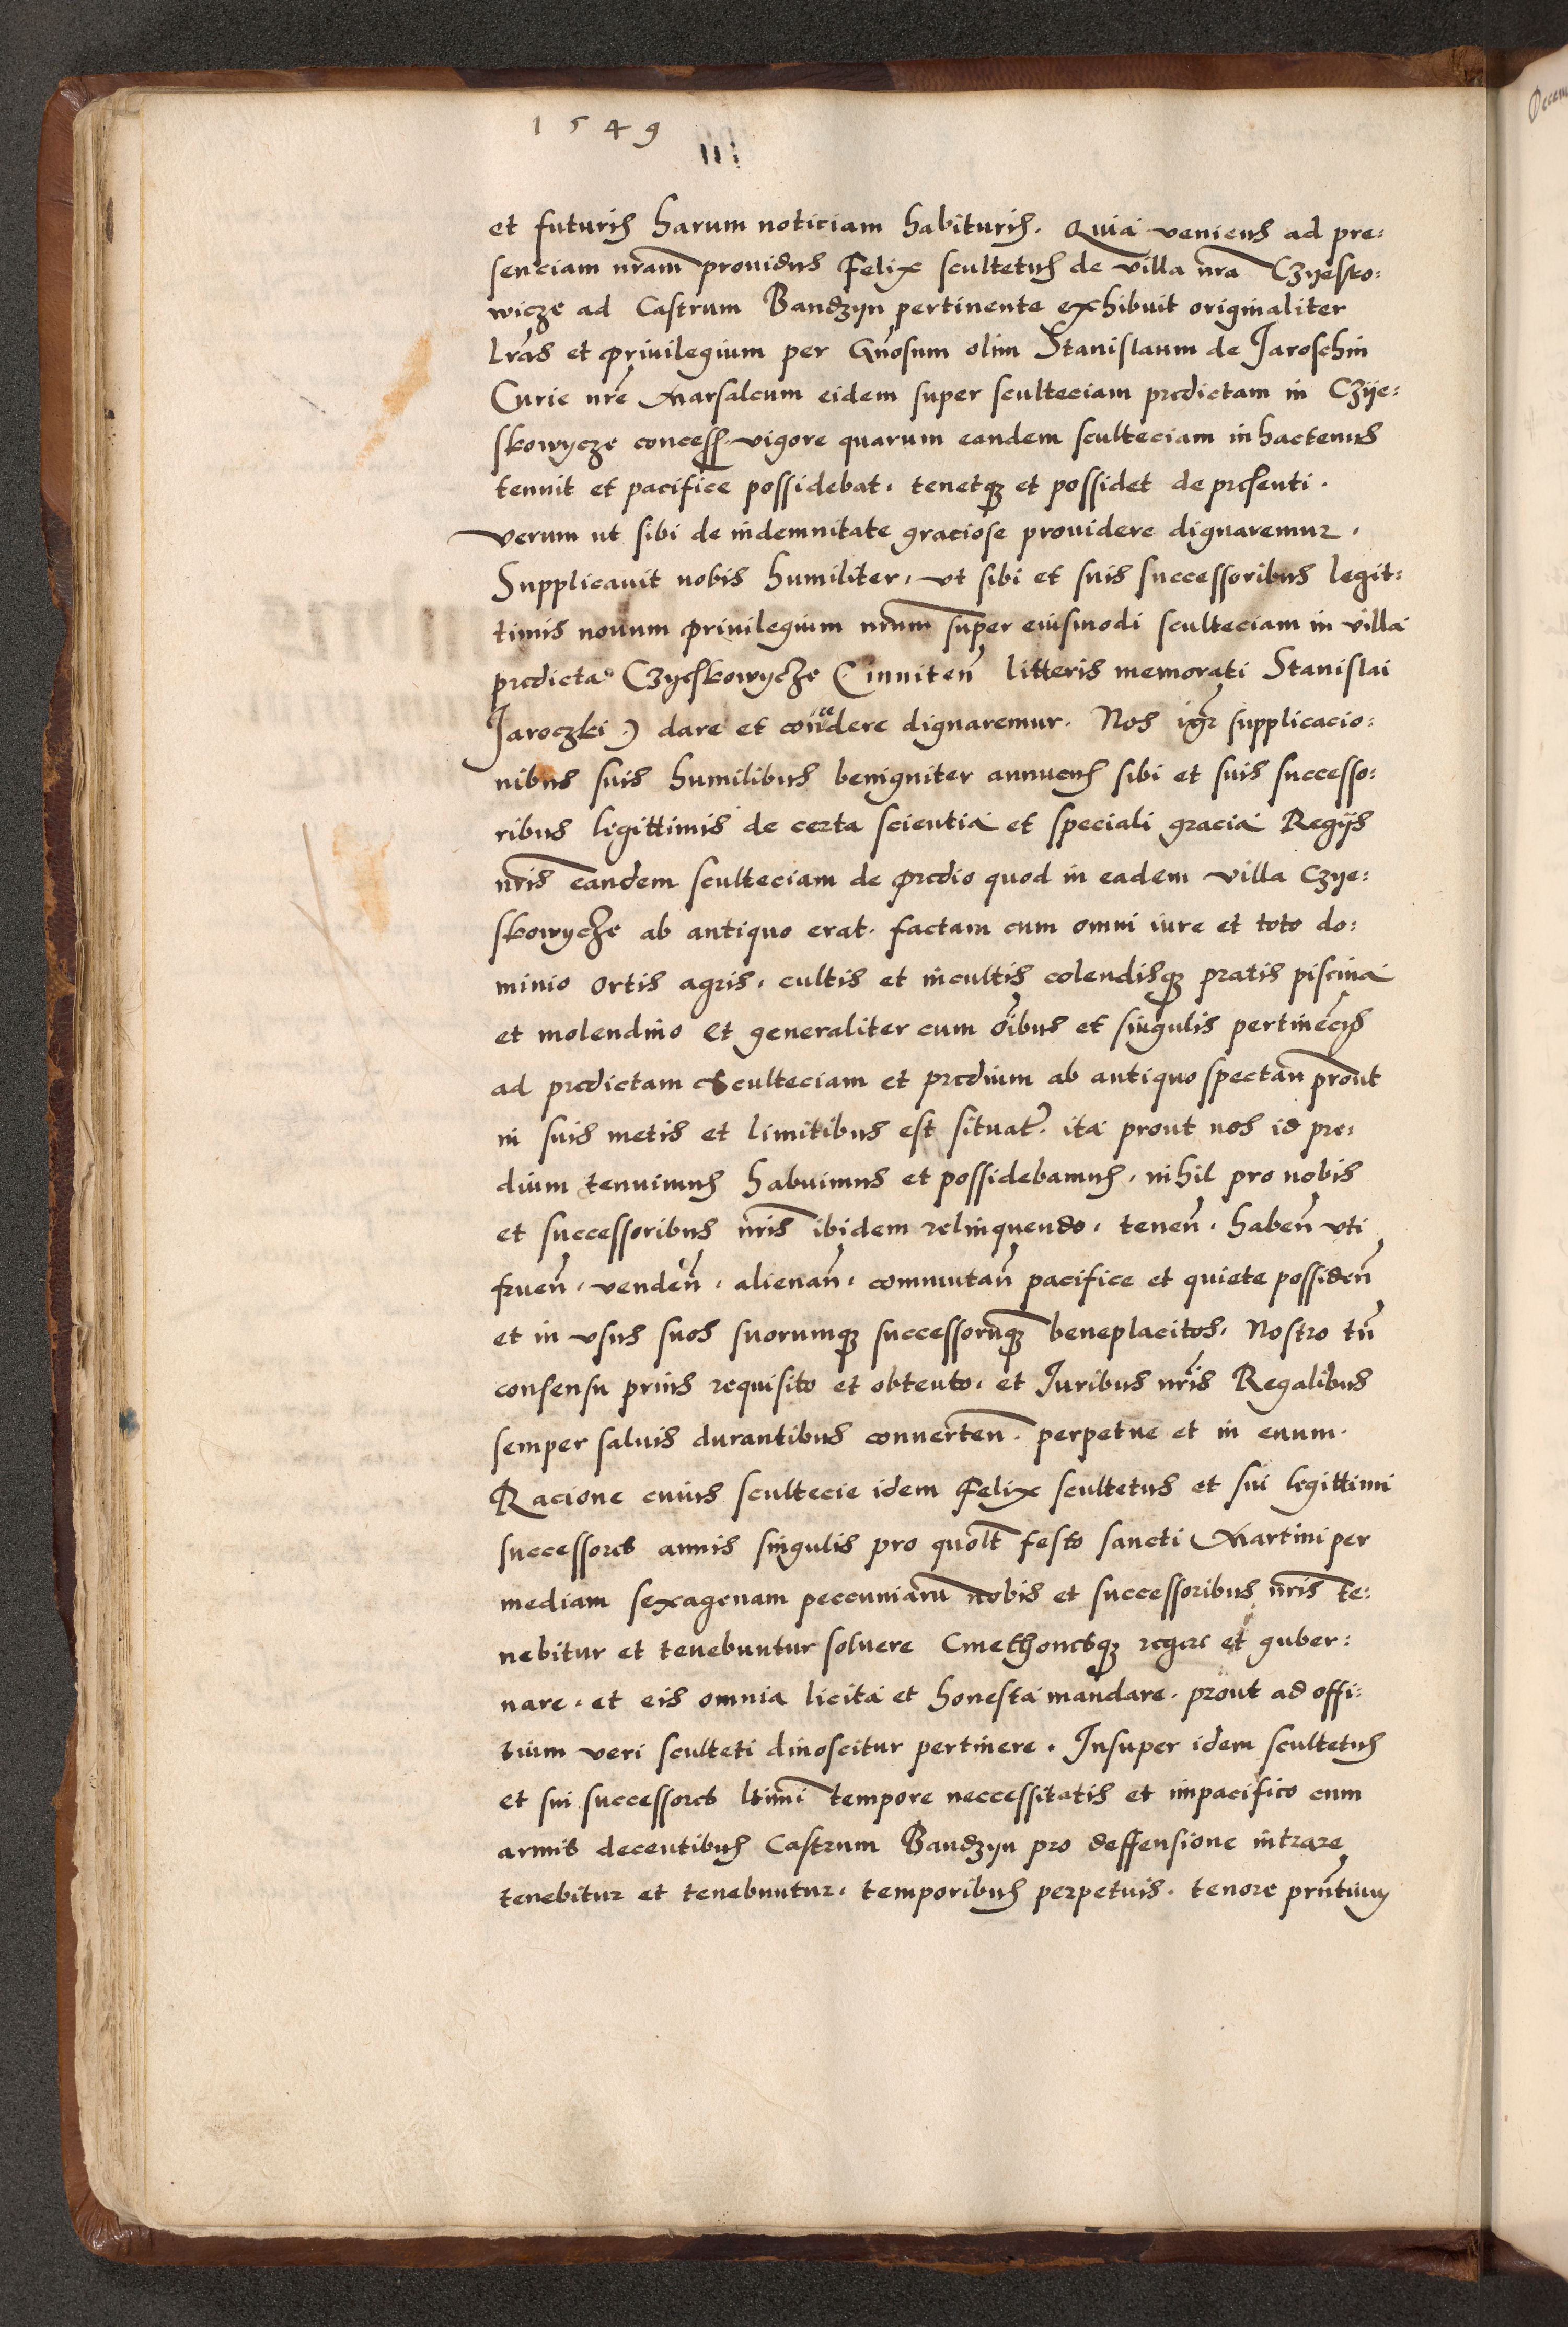 1549
et futuris harum noticiam habituris. Quia veniens ad pre:
senciam nr̃am prouidus Felix scultetus de villa nr̃a Czyesko:
wicze ad Castrum Bandzyn pertinente exhibuit originaliter
lr̃as et priuilegium per Gn̄osum olim Stanislaum de Jaroschin
Curie nr̃e Marsalcum eidem super sculteciam predictam in Czye:
skowycze concess. vigore quarum eandem sculteciam inhactenus
tenuit et pacifice possidebat. tenetq; et possidet de presenti.
verum ut sibi de indemnitate graciose prouidere dignaremur.
Supplicauit nobis humiliter, vt sibi et suis successoribus legit:
timis nouum priuilegium nr̃um super eiusmodi sculteciam in villa
predicta Czyeskowycze (inniten̄ litteris memorati Stanislai
Jaroczki) dare et concedere dignaremur. Nos igr̃ supplicacio:
nibus suis humilibus benigniter annuens sibi et suis successo:
ribus legittimis de certa scientia et speciali gracia Regijs
nr̃is eandem sculteciam de predio quod in eadem villa Czye:
skowycze ab antiquo erat. factam cum omni iure et toto do:
minio ortis agris, cultis et incultis colendisq; pratis piscina
et molendino et generaliter cum om̄ibus et singulis pertinēcijs
ad predictam Sculteciam et predium ab antiquo spectan̄ prout
in suis metis et limitibus est situat̃. ita prout nos id pre:
dium tenuimus habuimus et possidebamus, nihil pro nobis
et successoribus nr̃is ibidem relinquendo, tenen̄. haben̄ vti
fruen̄. venden̄. alienan̄. commutan̄ pacifice et quiete possiden̄
et in vsus suos suorumq; successorūq; beneplacitos. Nostro tn̄
consensu prius requisito et obtento, et Juribus nr̃is Regalibus
semper saluis durantibus conuerten̄. perpetue et in euum.
Racione cuius scultecie idem Felix scultetus et sui legittimi
successores annis singulis pro quolt̄ festo sancti Martini per
mediam sexagenam peccuniarū nobis et successoribus nr̃is te:
nebitur et tenebuntur soluere Cmethonesq; regere et guber:
nare. et eis omnia licita et honesta mandare. prout ad offi:
tium veri sculteti dinoscitur pertinere. Insuper idem scultetus
et sui successores ltim̄i tempore neccessitatis et impacifico cum
armis decentibus Castrum Bandzyn pro deffensione intrare
tenebitur et tenebuntur. temporibus perpetuis. tenore prñtium